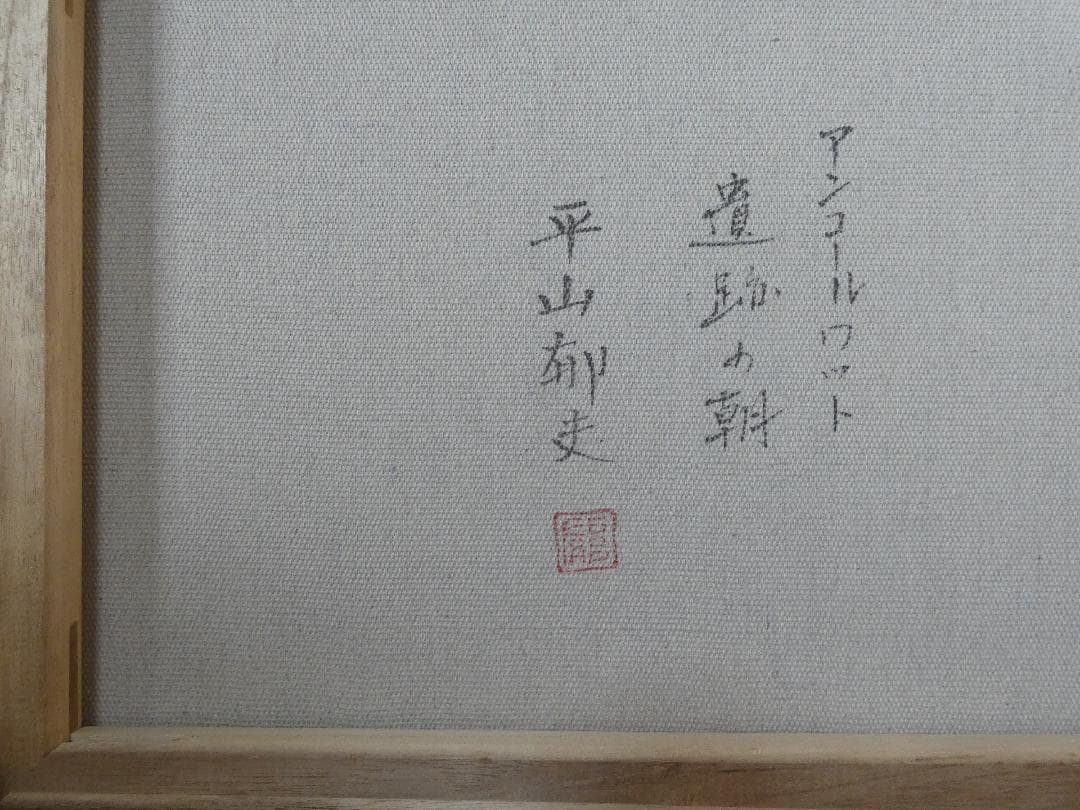 アンコールワット
遺跡の朝
平山郁夫